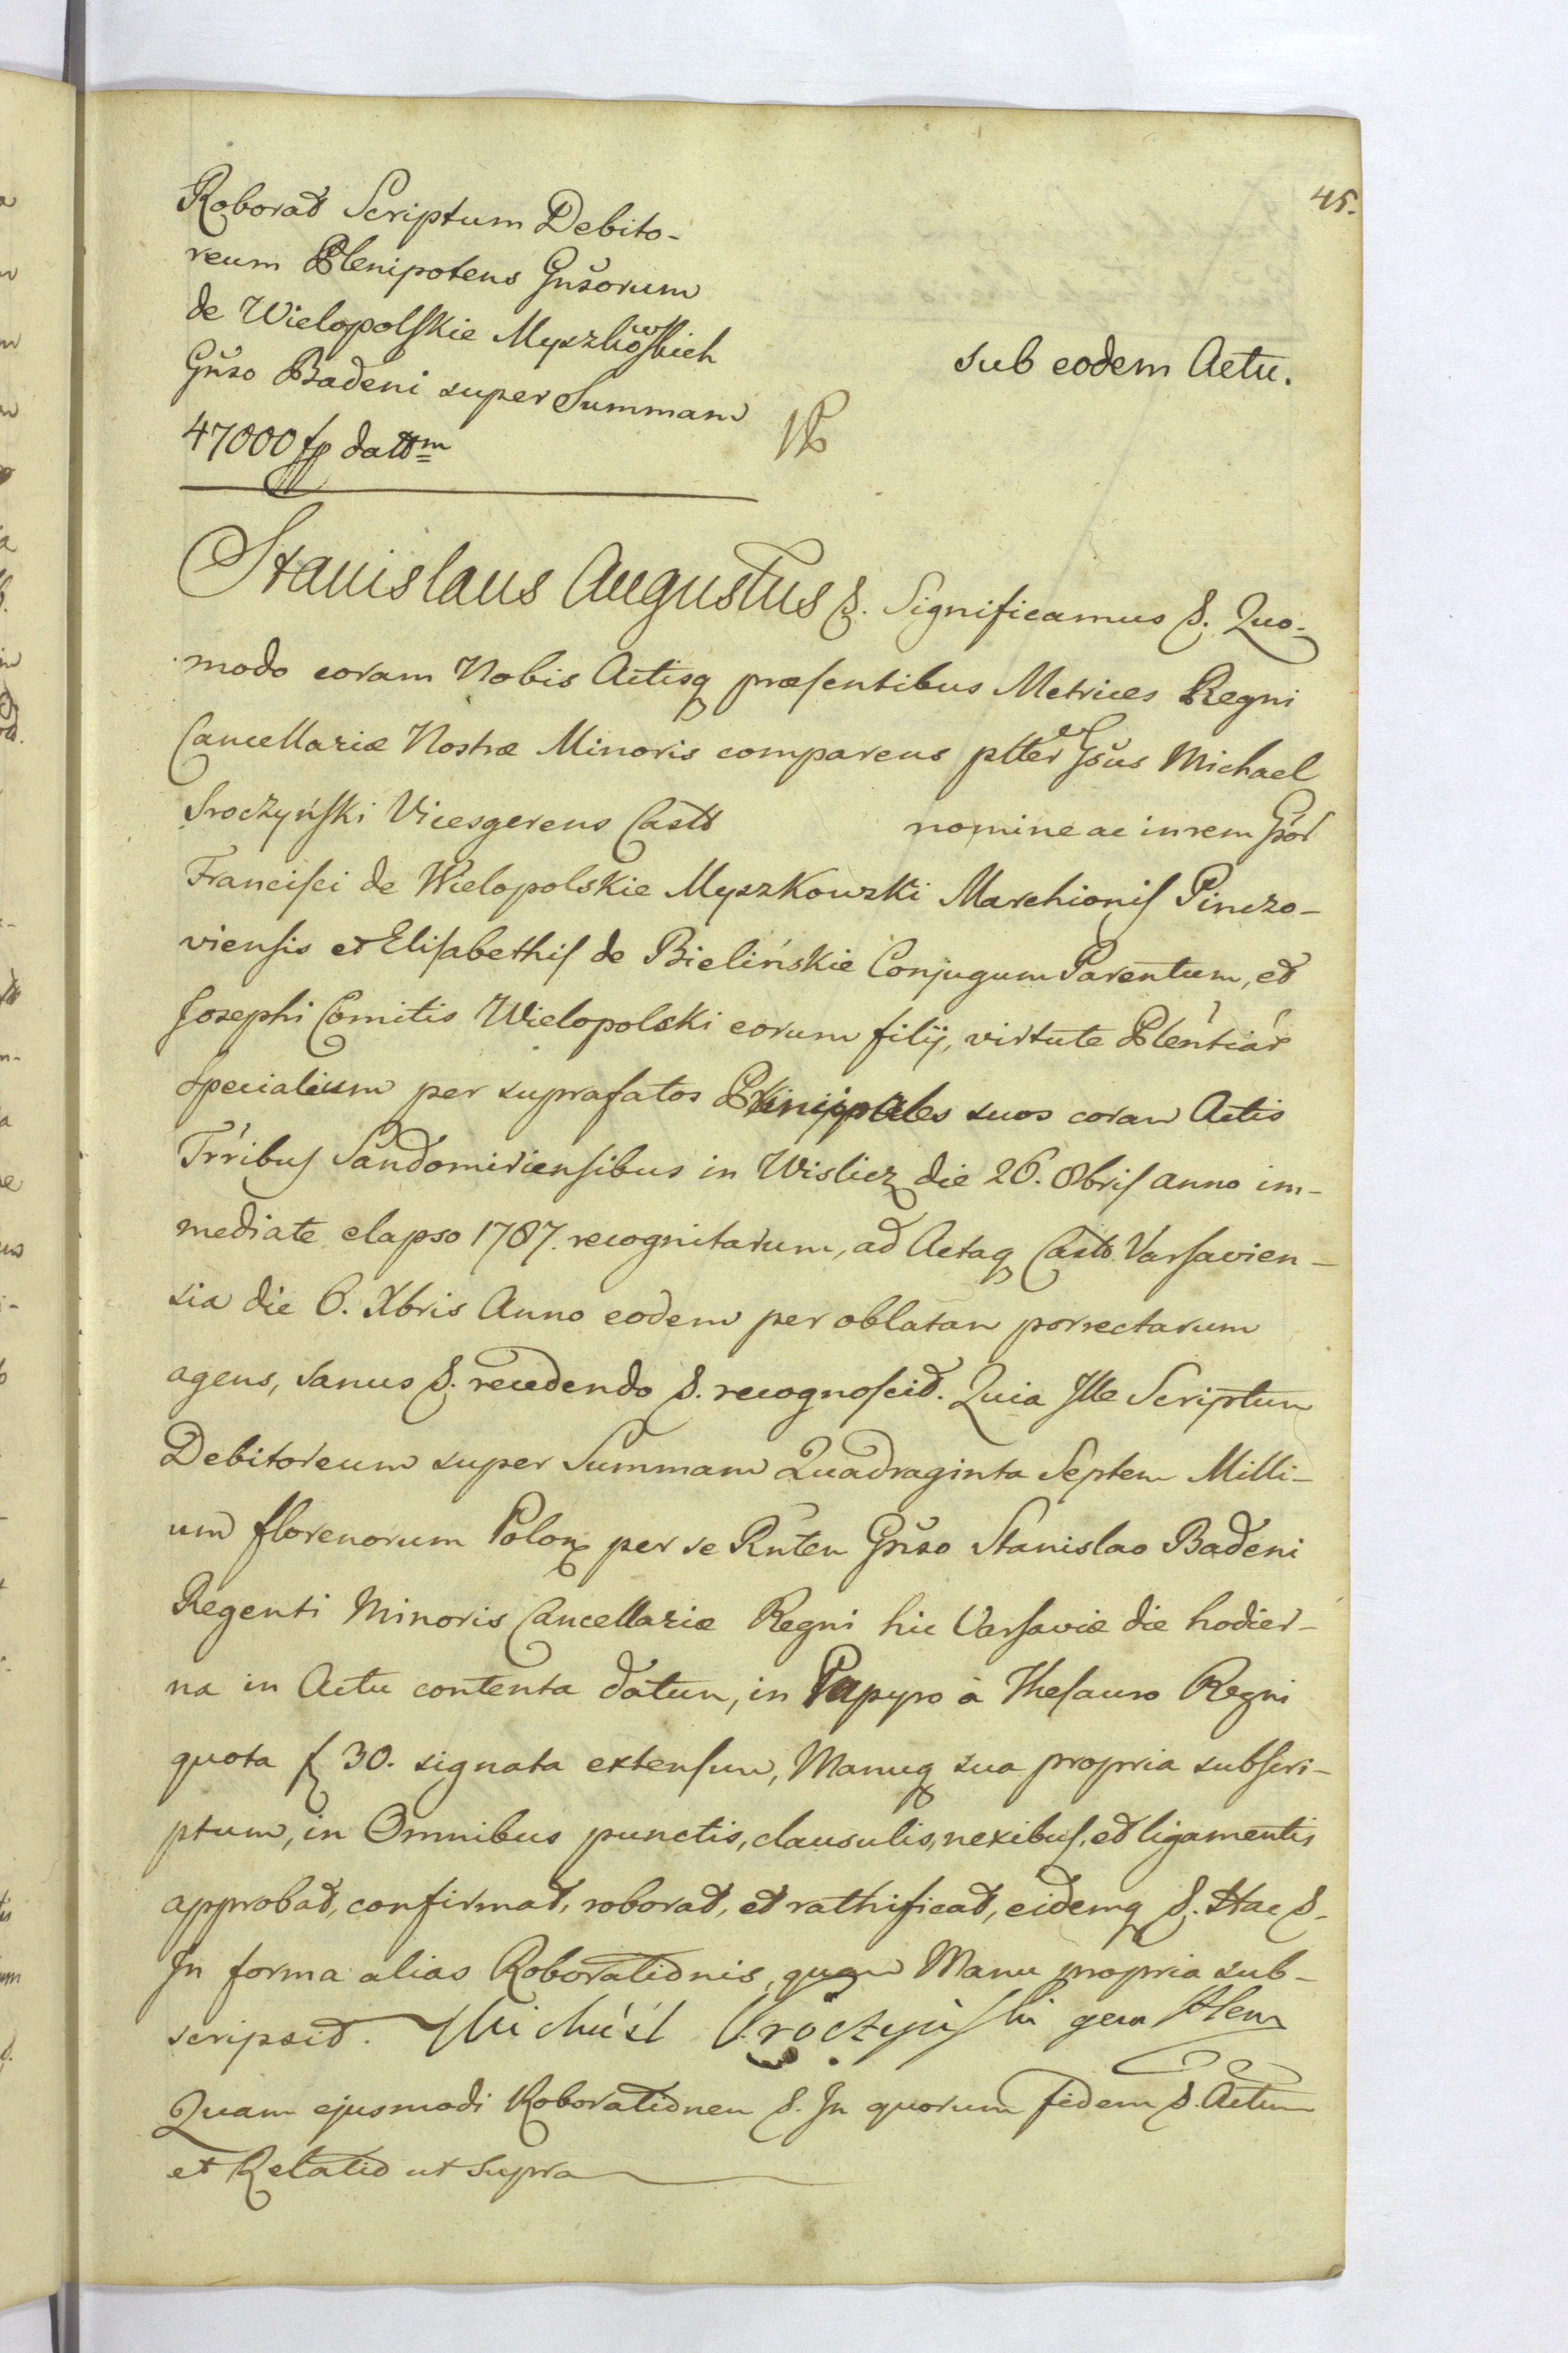 45.
Roborat Scriptum Debito-
reum Plenipotens Gnšorum
de Wielopolskie Myszkowskich
Gnšo Badeni super Summam
47000 fp dattm
sub eodem Actu.
Stanislaus Augustus &. Significamus &. Quo-
modo coram Nobis Actisq præsentibus Metrices Regni
Cancellariæ Nostræ Minoris comparens plter Gsus Michael
Sroczyński Vicesgerens Castr nomine ac in rem Gsor
Francisci de Wielopolskie Myszkowski Marchionis Pinczo-
viensis et Elisabethis de Bielińskie Conjugum Parentum, et
Josephi Comitis Wielopolski eorum filij, virtute Plentiar
specialium per suprafatos Principales suos coram Actis
Trribus Sandomiriensibus in Wislicz die 26. 8bris anno im-
mediate elapso 1787. recognitarum, ad Actaq Castr Varsavien-
sia die 6. Xbris Anno eodem per oblatam porrectarum
agens, sanus &. recedendo &. recognoscit. Quia Ille Scriptum
Debitoreum super Summam Quadraginta Septem Milli-
um florenorum Polon per se Rnten Gnso Stanislao Badeni
Regenti Minoris Cancellariæ Regni hic Varsaviæ die hodier-
na in Actu contenta datum, in Papyro à Thesauro Regni
quota f 30. signata extensum, Manuq sua propria subscri-
ptum, in Omnibus punctis, clausulis, nexibus, et ligamentis
approbat, confirmat, roborat, et rathificat, eidemq &. Hac &.
In forma alias Roborationis, quam Manu propria sub-
scripsit. Michał Sroczyński
Quam ejusmodi Roborationem &. In quorum fidem &. Actum
et Relatio ut supra